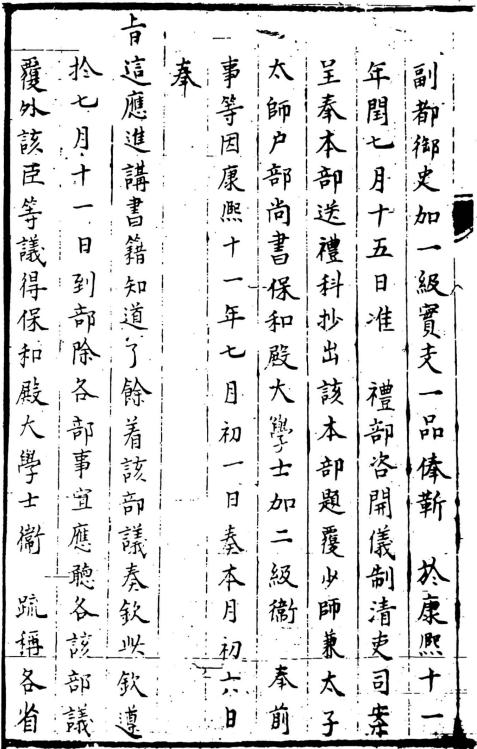 副都御史加一級實支一品俸靳　於康熙十一
年閏七月十五日准　禮部咨開儀制清吏司案
呈奉本部送禮科抄出該本部題覆少師兼太子
太師户部尚書保和殿大學士加二級衞　奉前
事等因康熙十一年七月初一日奏本月初六日
奉
旨這應進講書籍知道了餘着該部議奏欽此欽遵
扵七月十一日到部除各部事宜應聽各該部議
覆外該臣等議得保和殿大學士衞　疏稱各省